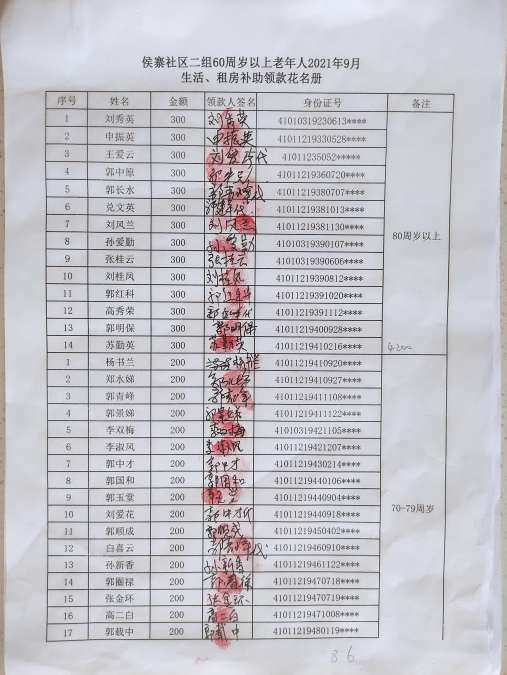 侯寨社区二组60周岁以上老年人2021年9月
生活、租房补助领款花名册
序号 姓名 金额 领款人签名 身份证号 备注
1 刘秀英 300 刘秀英 41010319230613****
2 申振英 300 申振英 41011219330528****
3 王爱云 300 41011235052*****
4 郭中原 300 41011219360720****
5 郭长水 300 41011219380707****
6 兑文英 300 41011219381013****
7 刘风兰 300 刘风兰 41011219381130****
80周岁以上
8 孙爱勤 300 孙爱勤 41010319390107****
9 张桂云 300 张桂云 41010319390606****
10 刘桂凤 300 刘桂凤 41011219390812****
11 郭红科 300 41011219391020****
12 高秀荣 300 41011219391112****
13 郭明保 300 郭明保 41011219400928****
14 苏勤英 300 苏勤英 41011219410216****
1 杨书兰 200 41011219410920****
2 郑水娣 200 41011219410927****
3 郭青峰 200 41011219411108****
4 郭景娣 200 41011219411122****
5 李双梅 200 李双梅 41010319421105****
6 李淑凤 200 李淑凤 41011219421207****
7 郭中才 200 郭中才 41011219430214****
8 郭国和 200 郭国和 41011219440106****
9 郭玉堂 200 41011219440904****
70-79周岁
10 刘爱花 200 41011219440918****
11 郭顺成 200 41011219450402****
12 白喜云 200 41011219460910****
13 孙新香 200 孙新香 41011219461122****
14 郭圈禄 200 41011219470718****
15 张金环 200 张金环 41011219470719****
16 高二白 200 高二白 41011219471008****
17 郭载中 200 郭载中 41011219480119****